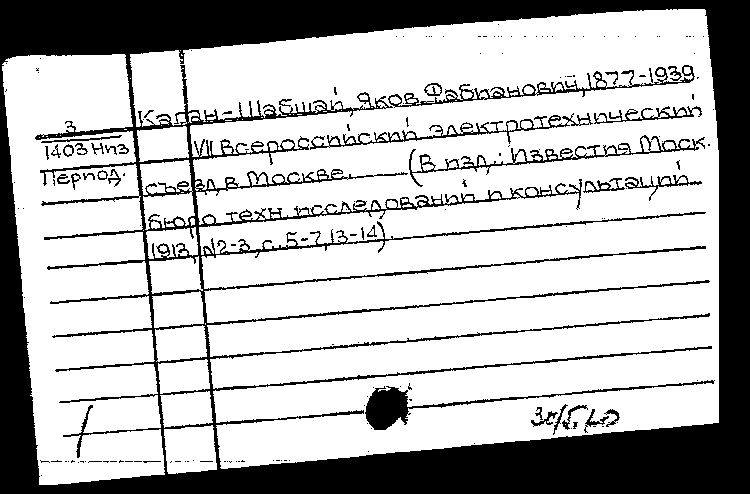 Каган-Шабшай, Яков Фабианович, 1877-1939.
3
1403 Низ
Период.
VII Всероссийский электротехнический
съезд в Москве. (В изд.: Известия Моск.
бюро техн. исследований и консультаций.
1913, №2-3, с. 5-7, 13-14).